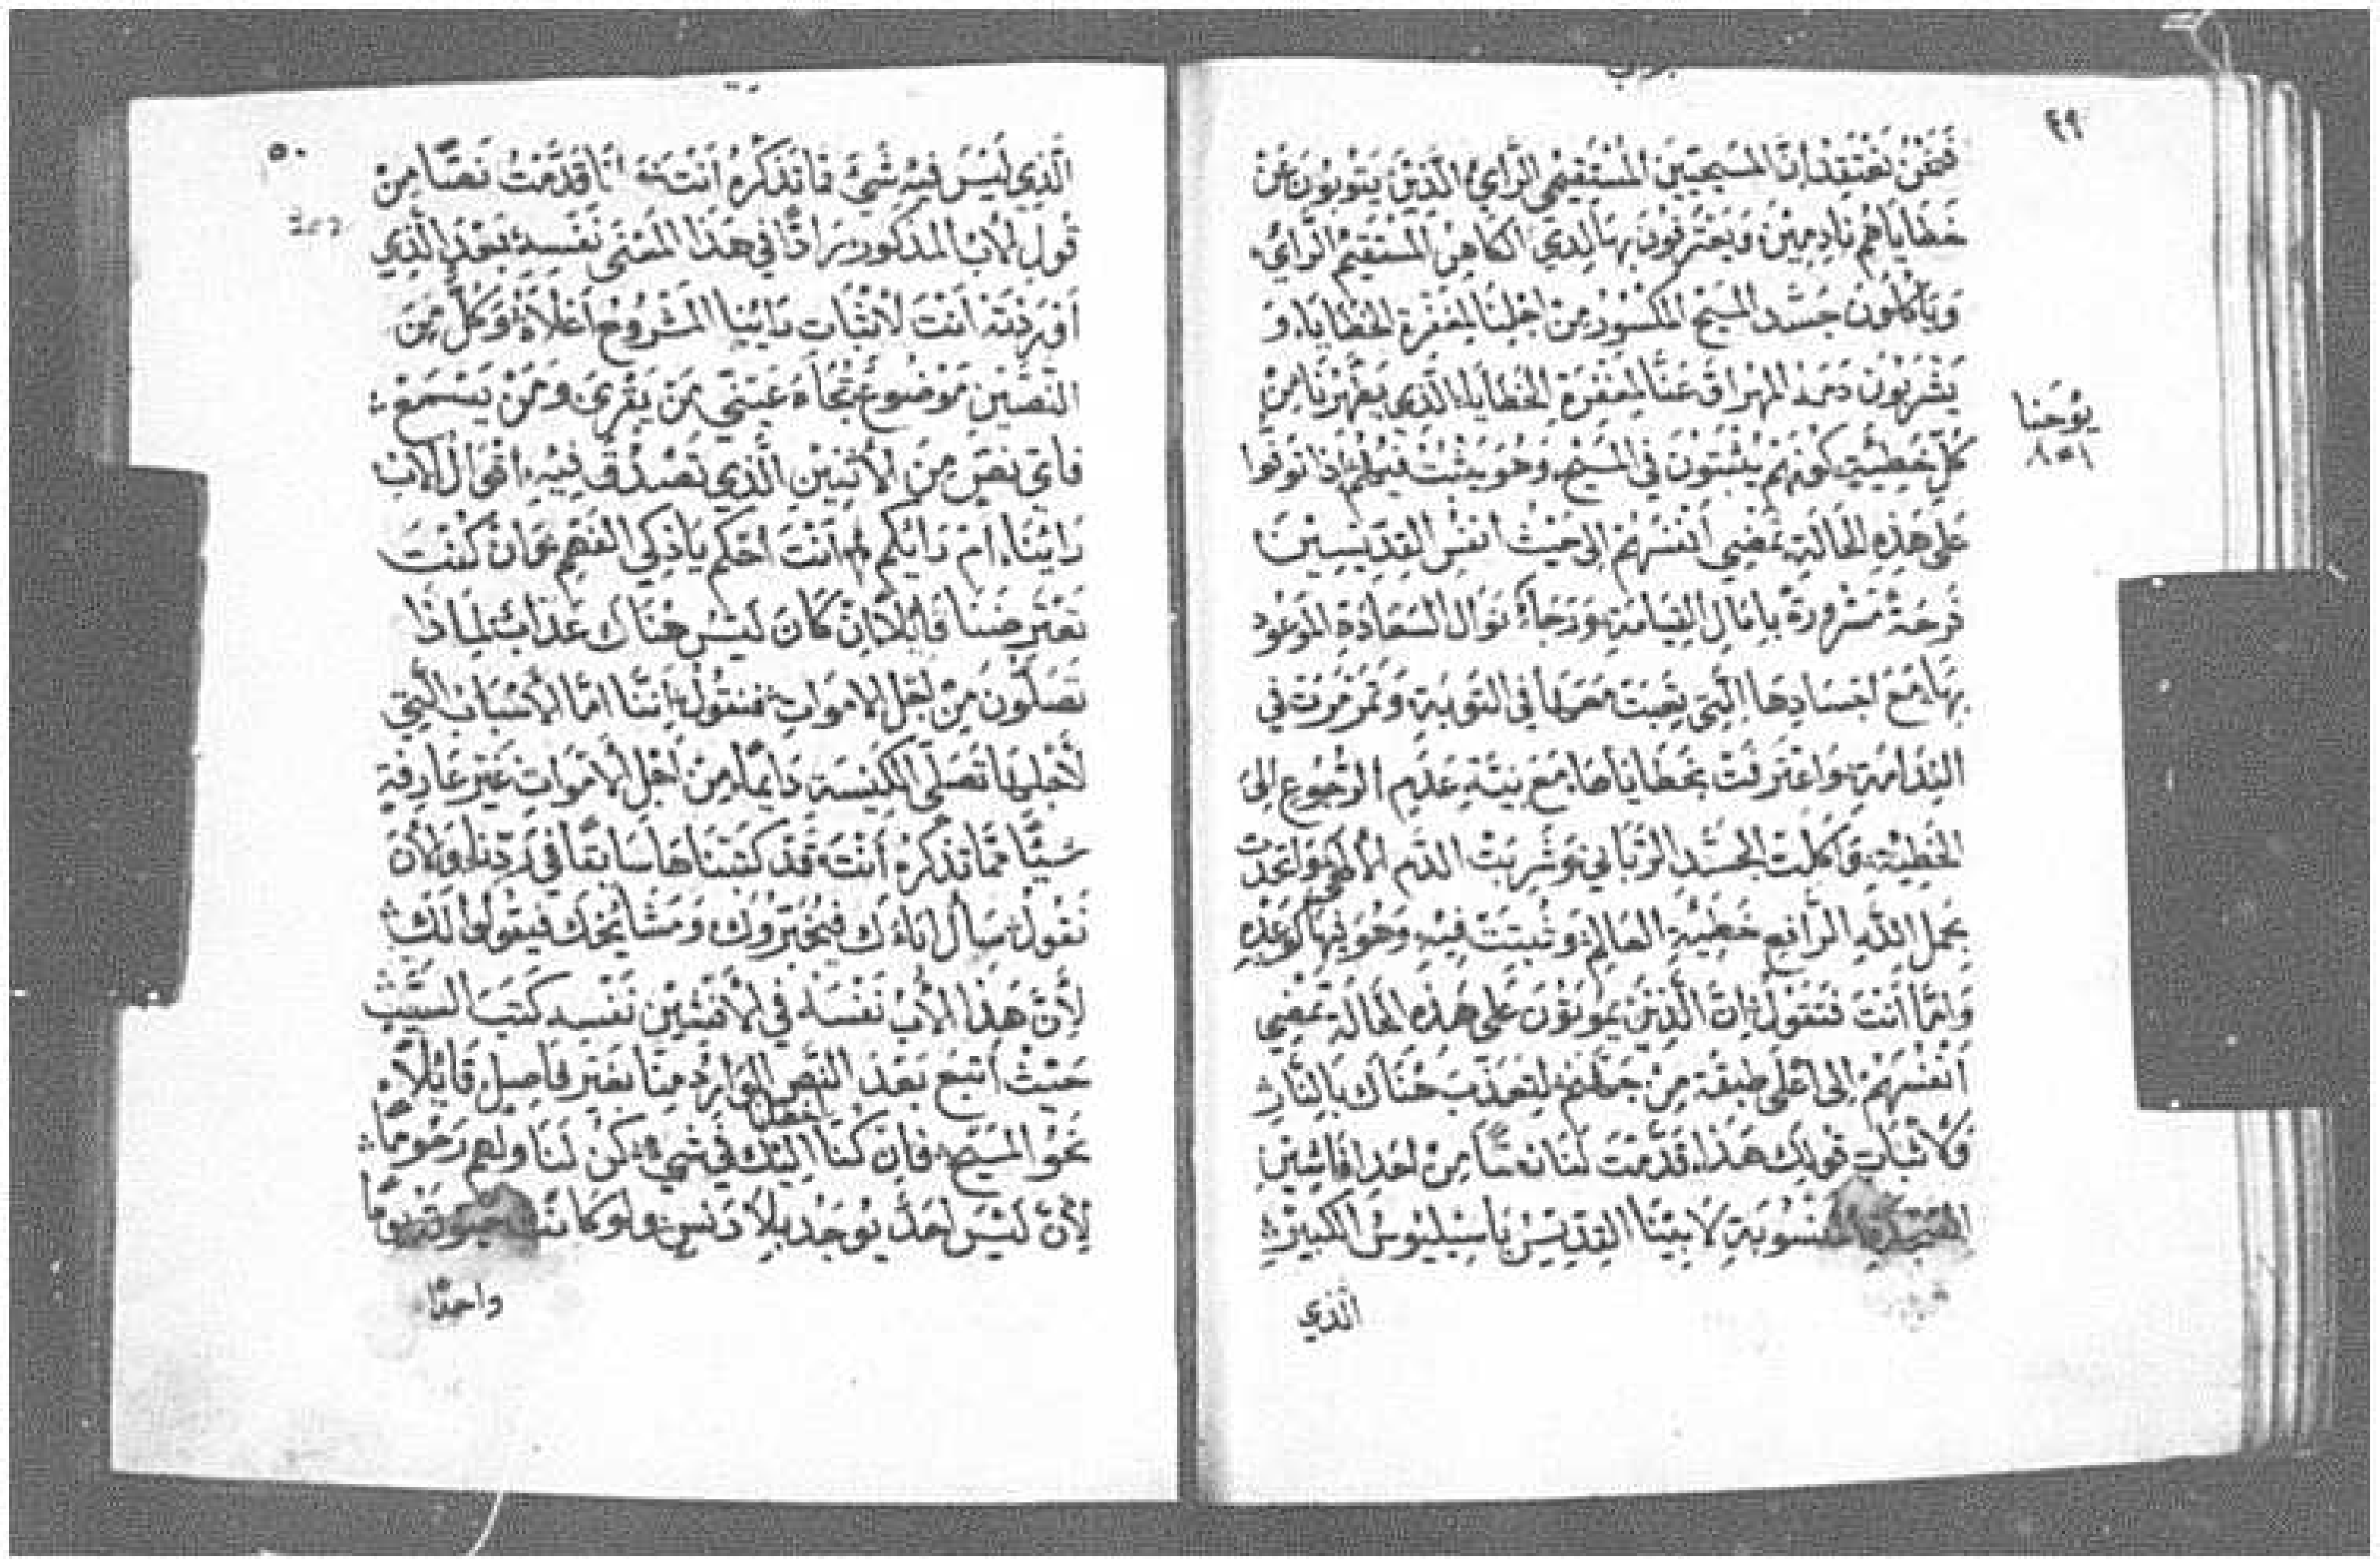 ٤٩
فنحن نعتقد ان المسيحيين المستقيمي الراي الذين يتوبون عن
خطاياهم نادمين ويعترفون بها لدي الكاهن المستقيم الراي
وياكلون جسد المسيح المكسور من اجلنا لمغفرة الخطايا، و
يشربون دمه المهراق عنا لمغفرة الخطايا، الذي يطهرنا من
يوحنا
كل خطية كونهم يثبتون في المسيح، وهو يثبت فيهم اذا توفوا
على هذه الحالة تمضي انفسهم الى حيث انفس القديسين
فرحة مسرورة بامال القيامة ورجاء نوال السعادة الموعود
بها مع اجسادها التي تعبت معها في التوبة وتمرمرت في
الندامة واعترفت بخطاياها مع نية عدم الرجوع الى
الخطية، واكلت الجسد الرباني وشربت الدم واتحدت
بحمل الله الرافع خطية العالم وثبتت فيه وهو فيها كوعده
واما انت فتقول ان الذين يموتون على هذه الحالة تمضي
انفسهم الى اعلى طبقة من جهنم لتعذب هناك بالنار
ولاثبات قولك هذا، قدمت لنا نصا من احد افاشين
المنسوبة لابينا القديس باسيليوس الكبير
الذي
٥٠
الذي ليس فيه شي مما تذكره انت انا قدمت نصا من
قول الاب المذكور رادا في هذا المعنى نفسه بعد الذي
اوردته انت لاثبات راينا المشروح اعلاه وكل من
النصين موضوع تجاه عيني من يقرى ومن يسمع
فاي نص من الاثنين الذي تصدق فيه اقوال الاب
راينا، ام رايكم انت احكم ياذكي الفهم وان كنت
تعترضنا قايلا ان كان ليس هناك عذاب لماذا
تصلون من اجل الاموات فنقول اننا اما الاسباب التي
لاجلها تصلي الكنيسة دايما من اجل الاموات غير عارفة
شيا مما تذكره انت قد كتبناها سابقا في ردنا والان
نقول سال اباءك فيخبروك ومشائخك فيقولوا لك
لان هذا الاب نفسه في الافشين نفسه كتب السبب
حيث اتبع بعد النص الوارد منا بغير فاصل قائلا
نحو المسيح فان كنا اليك في شي كن لنا ولهم رحوما
لان ليس احد يوجد بلا دنس ولو كانت حيوته يوما
واحدا